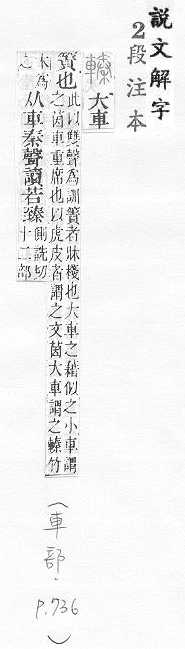 說文解字
2段注本
轃 大車
簀也 此以雙聲爲訓簀者牀棧也大車之藉似之小車謂
之茵車重席也以虎皮者謂之文茵大車謂之轃竹
木爲
之 从車秦聲讀若臻 側詵切
十二部
(車部.
p.736)